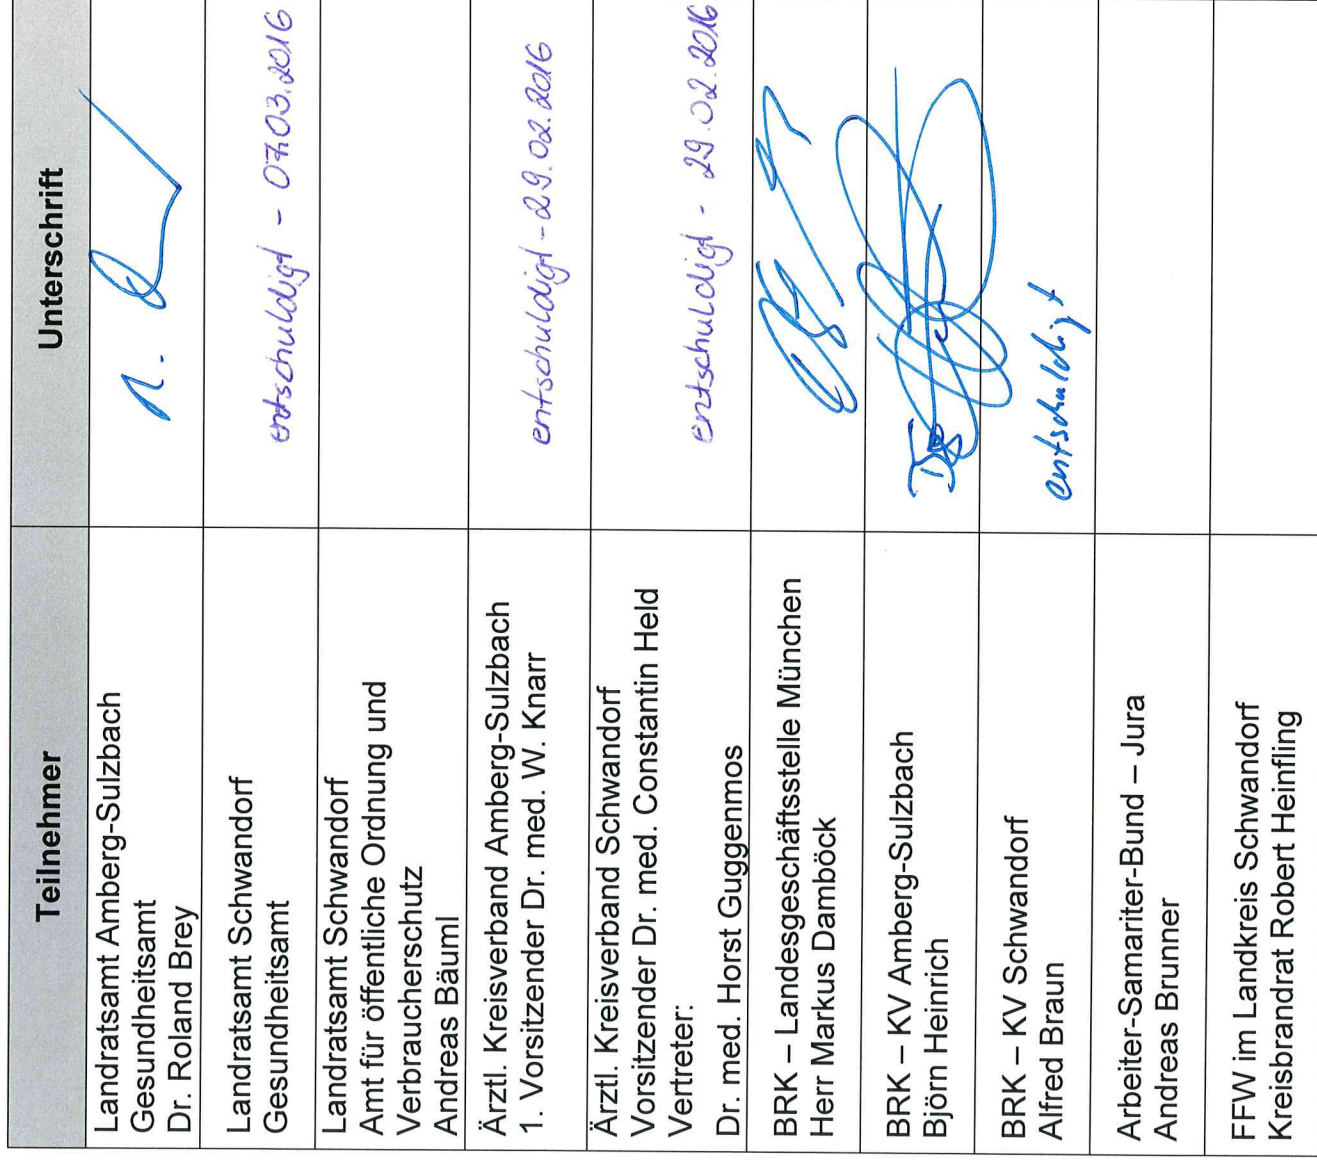 Teilnehmer
Unterschrift
Landratsamt Amberg-Sulzbach
Gesundheitsamt
Dr. Roland Brey
Landratsamt Schwandorf
Gesundheitsamt
entschuldigt - 07.03.2016
Landratsamt Schwandorf
Amt für öffentliche Ordnung und
Verbraucherschutz
Andreas Bäuml
Ärztl. Kreisverband Amberg-Sulzbach
1. Vorsitzender Dr. med. W. Knarr
entschuldigt - 29.02.2016
Ärztl. Kreisverband Schwandorf
Vorsitzender Dr. med. Constantin Held
Vertreter:
Dr. med. Horst Guggenmos
entschuldigt - 29.02.2016
BRK – Landesgeschäftsstelle München
Herr Markus Damböck
BRK – KV Amberg-Sulzbach
Björn Heinrich
BRK – KV Schwandorf
Alfred Braun
entschuldigt
Arbeiter-Samariter-Bund – Jura
Andreas Brunner
FFW im Landkreis Schwandorf
Kreisbrandrat Robert Heinfling